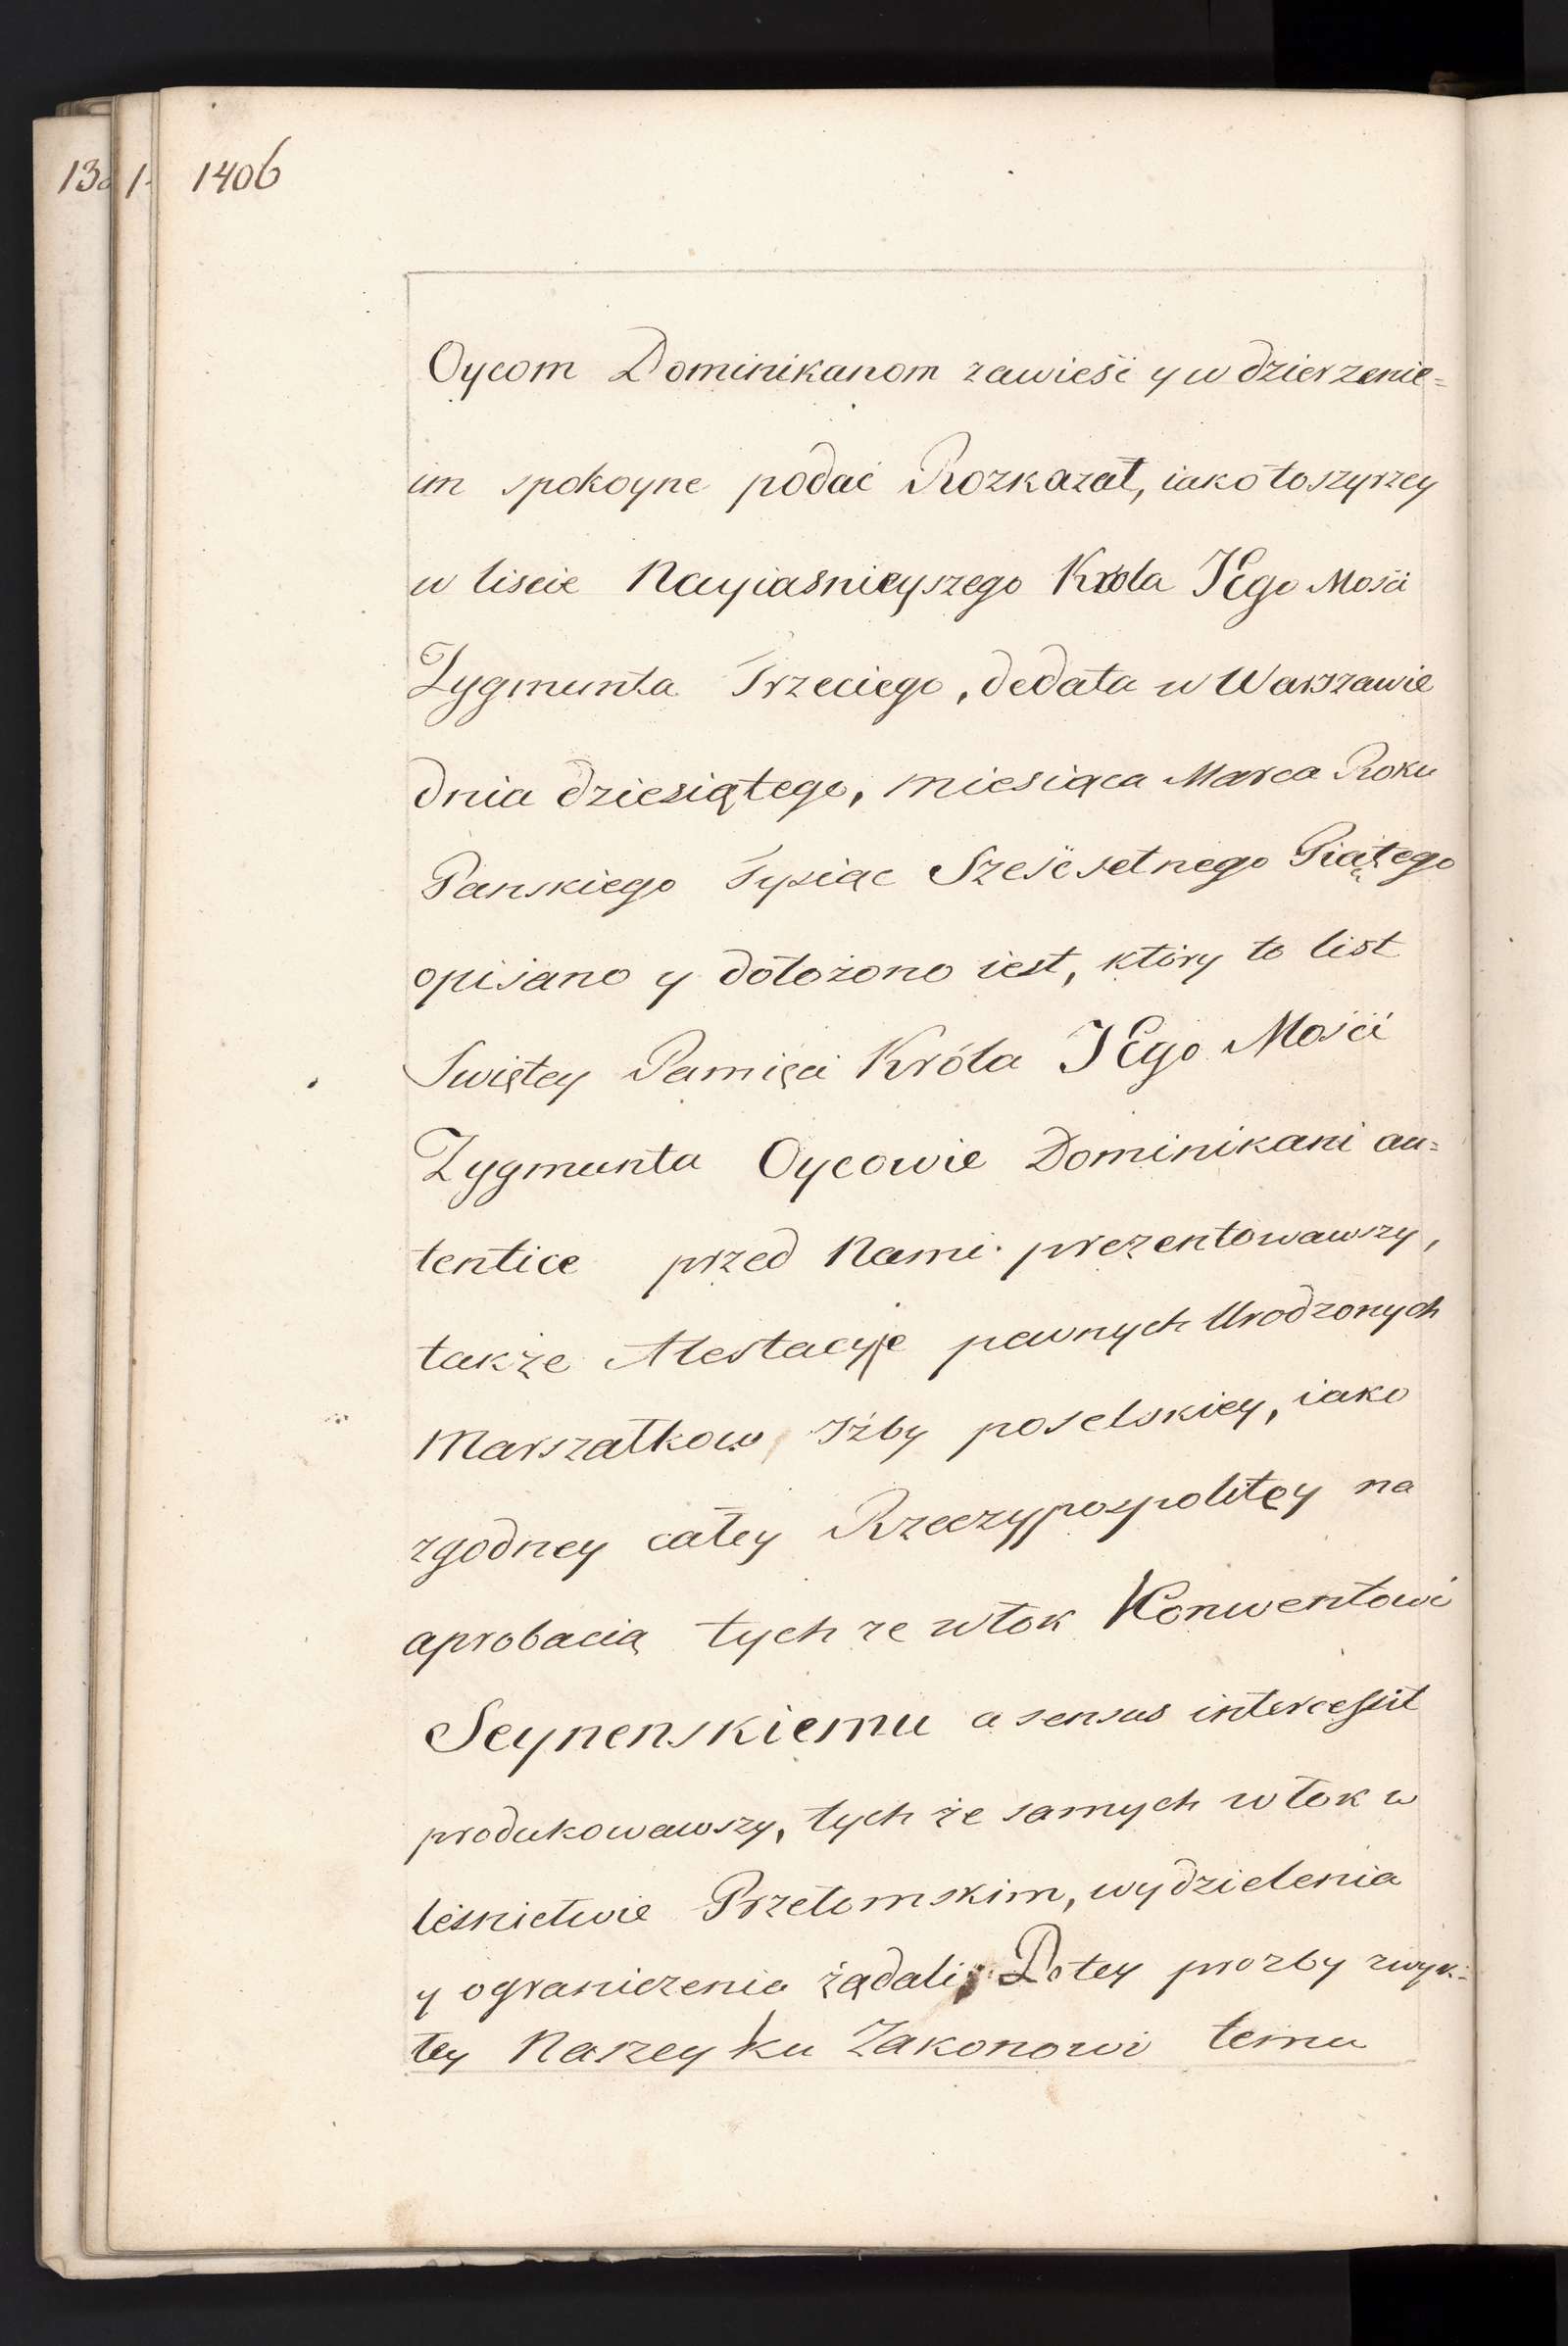 1406
Oycom Dominikanom zawieść y w dzierzenie=
im spokoyne podać Rozkazał, iako to szyrzey
w liscie Nayiasnieyszego Krola JEgo Mości
Zygmunta Trzeciego, dedata w Warszawie
dnia dziesiątego, miesiąca Marca Roku
Panskiego Tysiąc Sześćsetnego Piątego
opisano y dołożono iest, który to list
Swiętey Pamięci Króla JEgo Mości
Zygmunta Oycowie Dominikani au=
tentice przed Nami prezentowawszy,
także Atestacyje pewnych Urodzonych
Marszałkow Iżby poselskiey, iako
zgodney całey Rzeczypospolitey na
aprobacią tych ze włok Konwentowi
Seynenskiemu asensus intercessit
produkowawszy, tych że samych włok w
leśnictwie Przełomskim, wydzielenia
y ograniczenia żądali; Do tey prozby zwyk=
łey Naszey ku Zakonowi temu